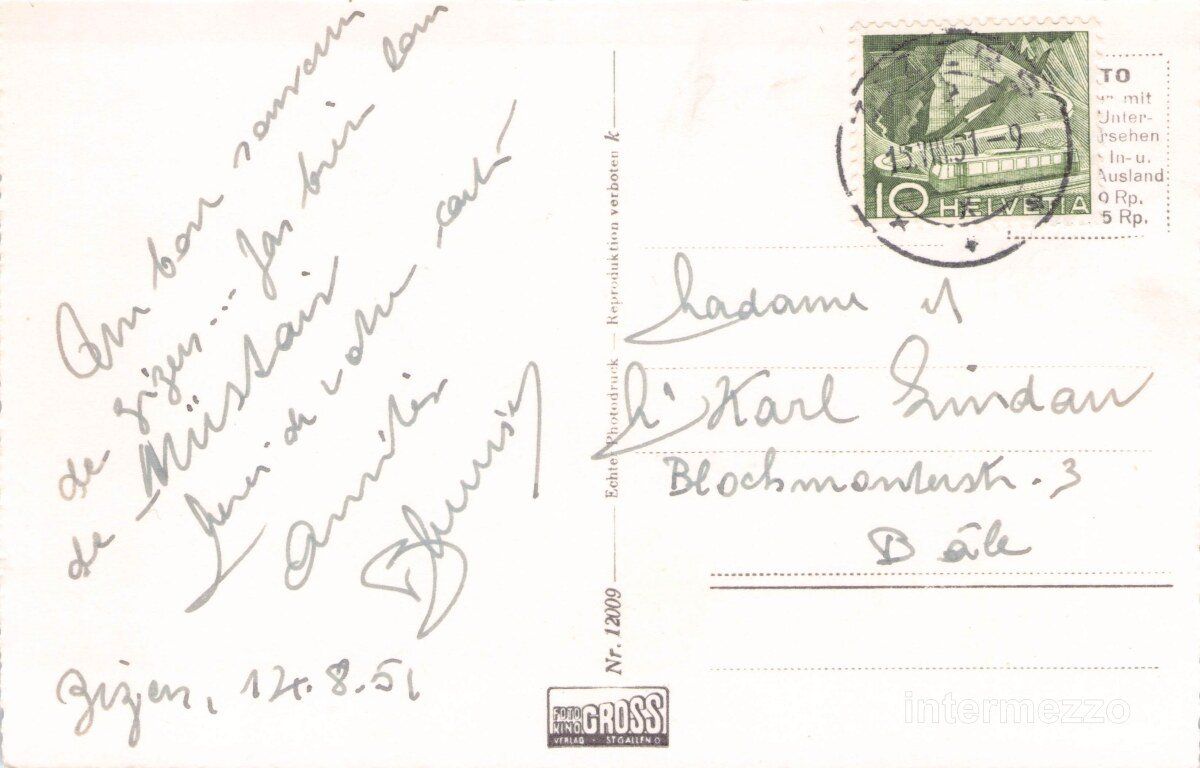 bon
de Zizers... Pas bien loin
de Müstair
Merci de votre carte
Amitiés
Zizers, 14.8.51
Nr. 12009 — Echter Photodruck — Reproduktion verboten k —
FOTO KINO GROSS
VERLAG · ST GALLEN O
TO
mit
Unter-
rsehen
In- u.
Ausland
0 Rp.
5 Rp.
10 HELVETIA
13.VIII.51-9
Madame et
Mr Karl Lindau
Blochmonterstr. 3
Bâle
intermezzo